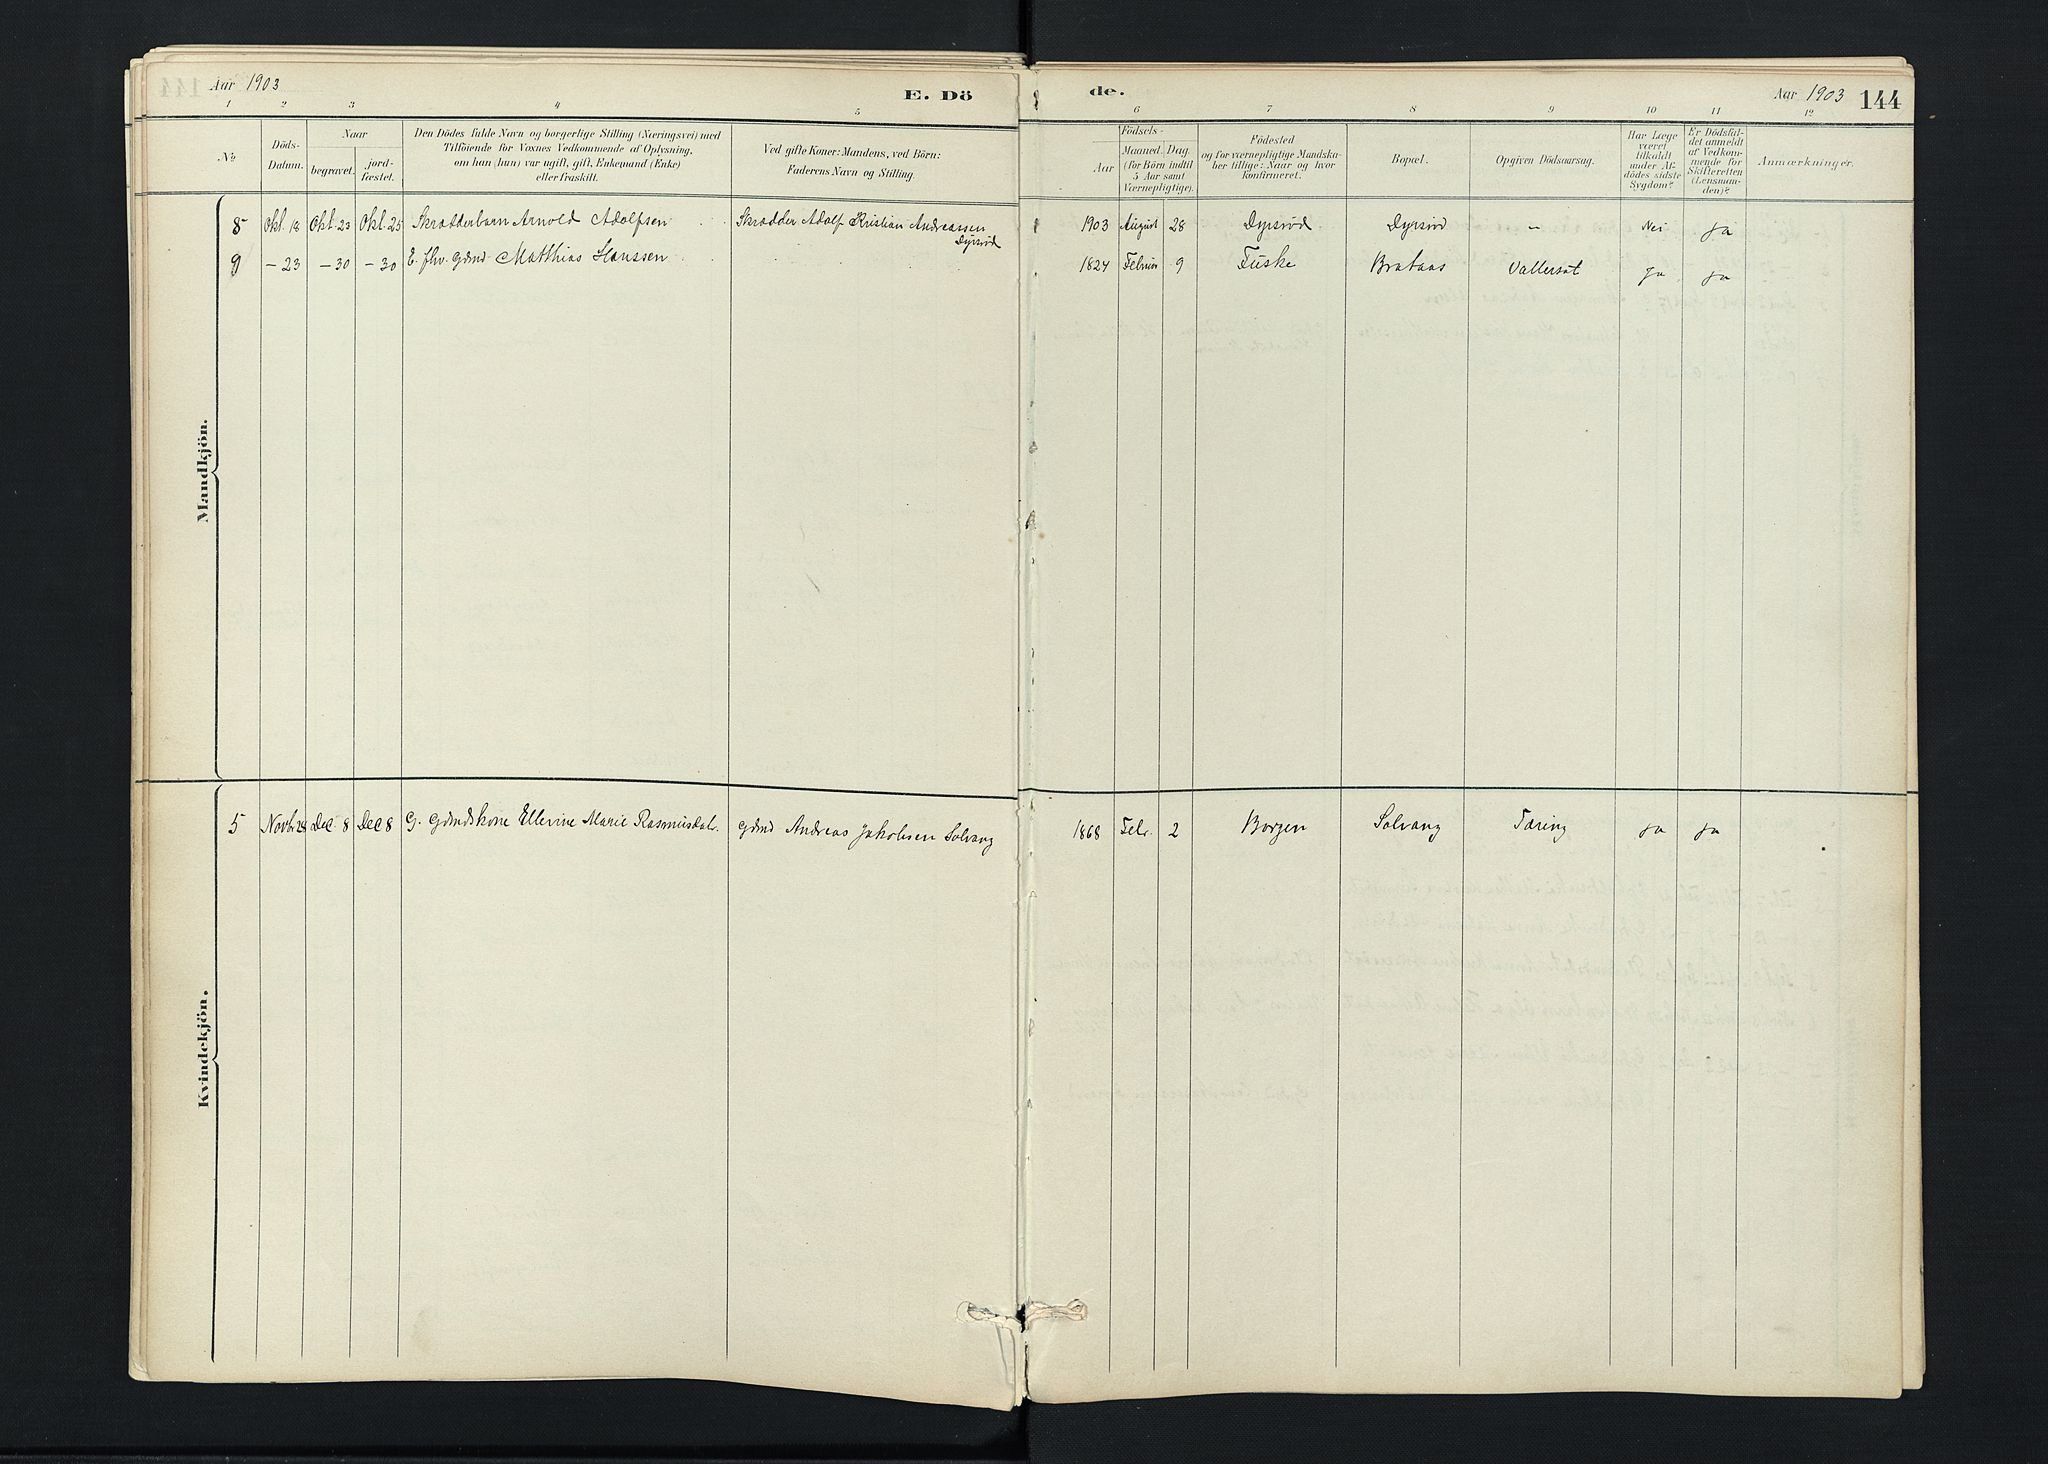 Aar 1903
E. Dö
de.
Aar 1903 144
1 2 3 4 5
6 7 8 9 10 11 12
No
Döds-Datum.
Naar
begravet.
jord-fæstet.
Den Dödes fulde Navn og borgerlige Stilling (Næringsvei) med
Tilföiende for Voxnes Vedkommende af Oplysning,
om han (hun) var ugift, gift, Enkemand (Enke)
eller fraskilt.
Ved gifte Koner: Mandens, ved Börn:
Faderens Navn og Stilling.
Födsels-
Aar
Maaned. Dag.
(for Börn indtil
5 Aar samt
Værnepligtige).
Födested
og for værnepligtige Mandska-
ber tillige: Naar og hvor
konfirmeret.
Bopæl.
Opgiven Dödsaarsag.
Har Læge
været
tilkaldt
under Af-
dödes sidste
Sygdom?
Er Dödsfal-
det anmeldt
af Vedkom-
mende for
Skifteretten
(Lensman-
den)?
Anmærkninger.
Mandkjön.
8 Okt. 18 Okt. 23 Okt. 25 Skrædderbarn Arnold Adolfsen Skrædder Adolf Kristian Andreassen
Dyrsrød
1903 August 28 Dyrsrød Dyrsrød – Nei Ja
9 – 23 – 30 – 30 E. fhv. Gdmd Matthias Hanssen
1824 9 Fuske Brataas Vattersot Ja Ja
Kvindekjön.
5 Novb. 28 Dec 8 Dec 8 G. Gdmdskone Ellevine Marie Rasmusdatr. Gdmd Andreas Jakobsen Solvang
1868 Febr. 2 Borgen Solvang Tæring Ja Ja